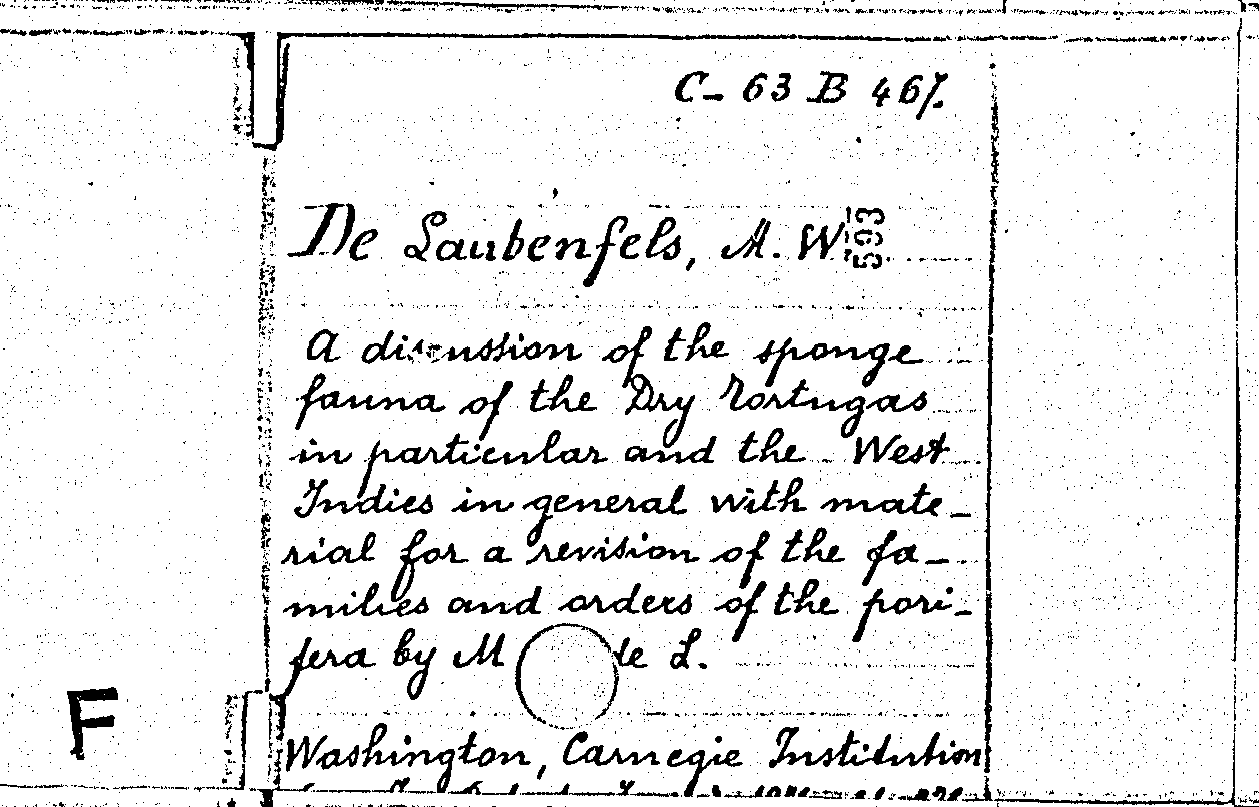 C- 63 B 467.
De Laubenfels, M. W.
593
A discussion of the sponge
fauna of the Dry Tortugas
in particular and the West
Indies in general with mate-
rial for a revision of the fa-
milies and orders of the pori-
fera by M de L.
F
Washington, Carnegie Institution